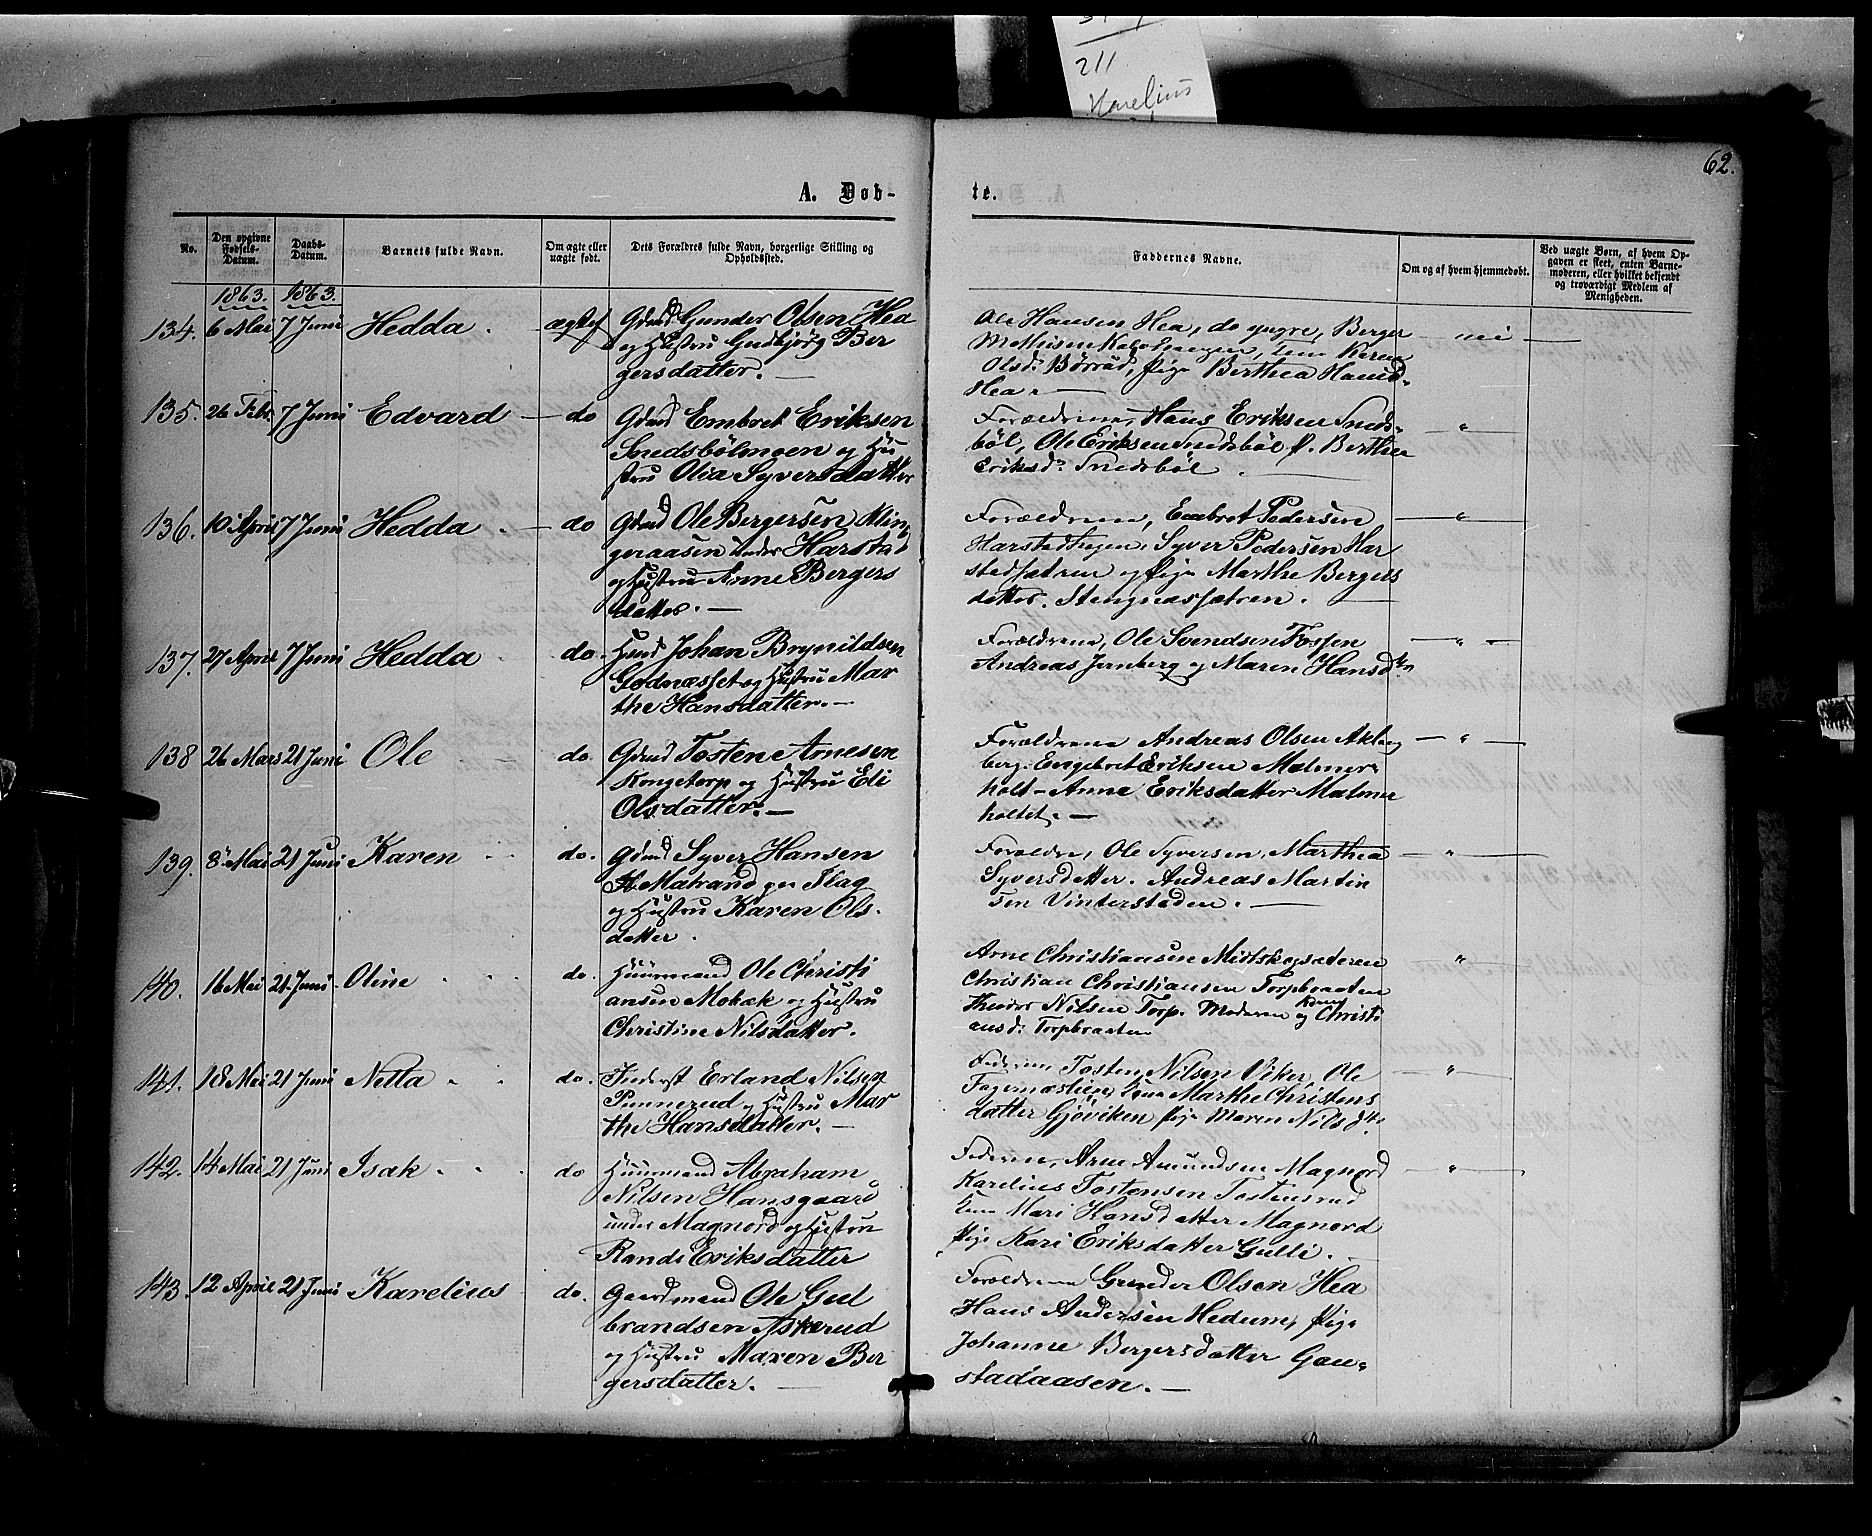 211
Karelius
62.
A. Døb-
te.
No.
Den opgivne Fødsels-Datum.
Daabs-Datum.
Barnets fulde Navn.
Om ægte eller uægte født.
Dets Forældres fulde Navn, borgerlige Stilling og Opholdssted.
Faddernes Navne.
Om og af hvem hjemmedøbt.
Ved uægte Børn, af hvem Opgaven er skeet, enten Barnemoderen, eller hvilket bekjendt og troværdigt Medlem af Menigheden.
1863. 1863.
134. 6 Mai 7 Juni Hedda ægtef Gdmd Gunder Olsen Hea
og Hustru Gudbjørg Ber
gersdatter. —
Ole Hansen Hea, do yngre, Berger
Mathisen
Olsd: Børrud, Pige Berthea Hansd.
Hea. —
nei —
135. 26 Febr 7 Juni Edvard — do Gdmd Embret Eriksen
Snedsbølmoen og Hu
stru Olia Syversdatter
Forældrene, Hans Eriksen Sneds-
bøl, Ole Eriksen Snedsbøl P. Berthea
Eriksd: Snedsbøl
"
136. 10 April 7 Juni Hedda — do Gdmd Ole Bergersen Klin
geraasen under Harstad
og Hustru Anne Bergers
datter. —
Forældrene, Embret Pedersen
Harstadhagen, Syver Pedersen Har
stadsætren og Pige Marthe Bergers
datter. Stengnæssætren. —
"
137. 27 April 7 Juni Hedda do. Husmd Johan Brynildsen
Godnæsset og Hustru Mar
the Hansdatter. —
Forældrene, Ole Svendsen Fossen
Andreas Jernberg og Maren Hansdtr
"
138 26 Mars 21 Juni Ole do. Gdmd Tosten Arnesen
Kongetorp og Hustru Eli
Olsdatter. —
Forældrene Andreas Olsen Aklang
berg. Engebret Eriksen Malmer-
holt — Anne Eriksdatter Malmer
holtet. —
"
139. 8 Mai 21 Juni Karen do. Gdmd Syver Hansen
St. Matrand pr Flag
og Hustru Karen Ols.
datter.
Forældre, Ole Syversen, Marthea
Syversdatter. Andreas Martin
sen Vinterstaden. —
"
140. 16 Mai 21 Juni Oline do. Huusmand Ole Christi
ansen Mokæk og Hustru
Christine Nilsdatter.
Arne Christiansen Mistskogsæteren
Christian Christiansen Torpbraaten
Theodor Nilsen Torp. Moderen og Karen Christi
ansd: Torpbraaten
"
141. 18 Mai 21 Juni Netta do. Inderst Erland Nilsen
Punnerud og Hustru Mar
the Hansdatter. —
Faderen Tosten Nilsen Viker, Ole
Fagernæslien, Kone Marthe Christens
datter Gjøviken Pige Maren Nilsdtr
"
142. 14 Mai 21 Juni Isak do Huusmand Abraham
Nilsen Hansgaard
under Magnord og Hustru
Randi Eriksdatter
Faderen, Arne Amundsen Magnord
Karelius Tostensen Tostensrud
Kone Mari Hansdatter Magnord
Pige Kari Eriksdatter Gulli. —
"
143. 12 April 21 Juni Karelius do. Gaardmand Ole Gul
brandsen Askerud
og Hustru Maren Ber
gersdatter. —
Forældrene Gunder Olsen Hea
Hans Andersen Hedum, Pige
Johanne Bergersdatter Gau-
stadaasen. —